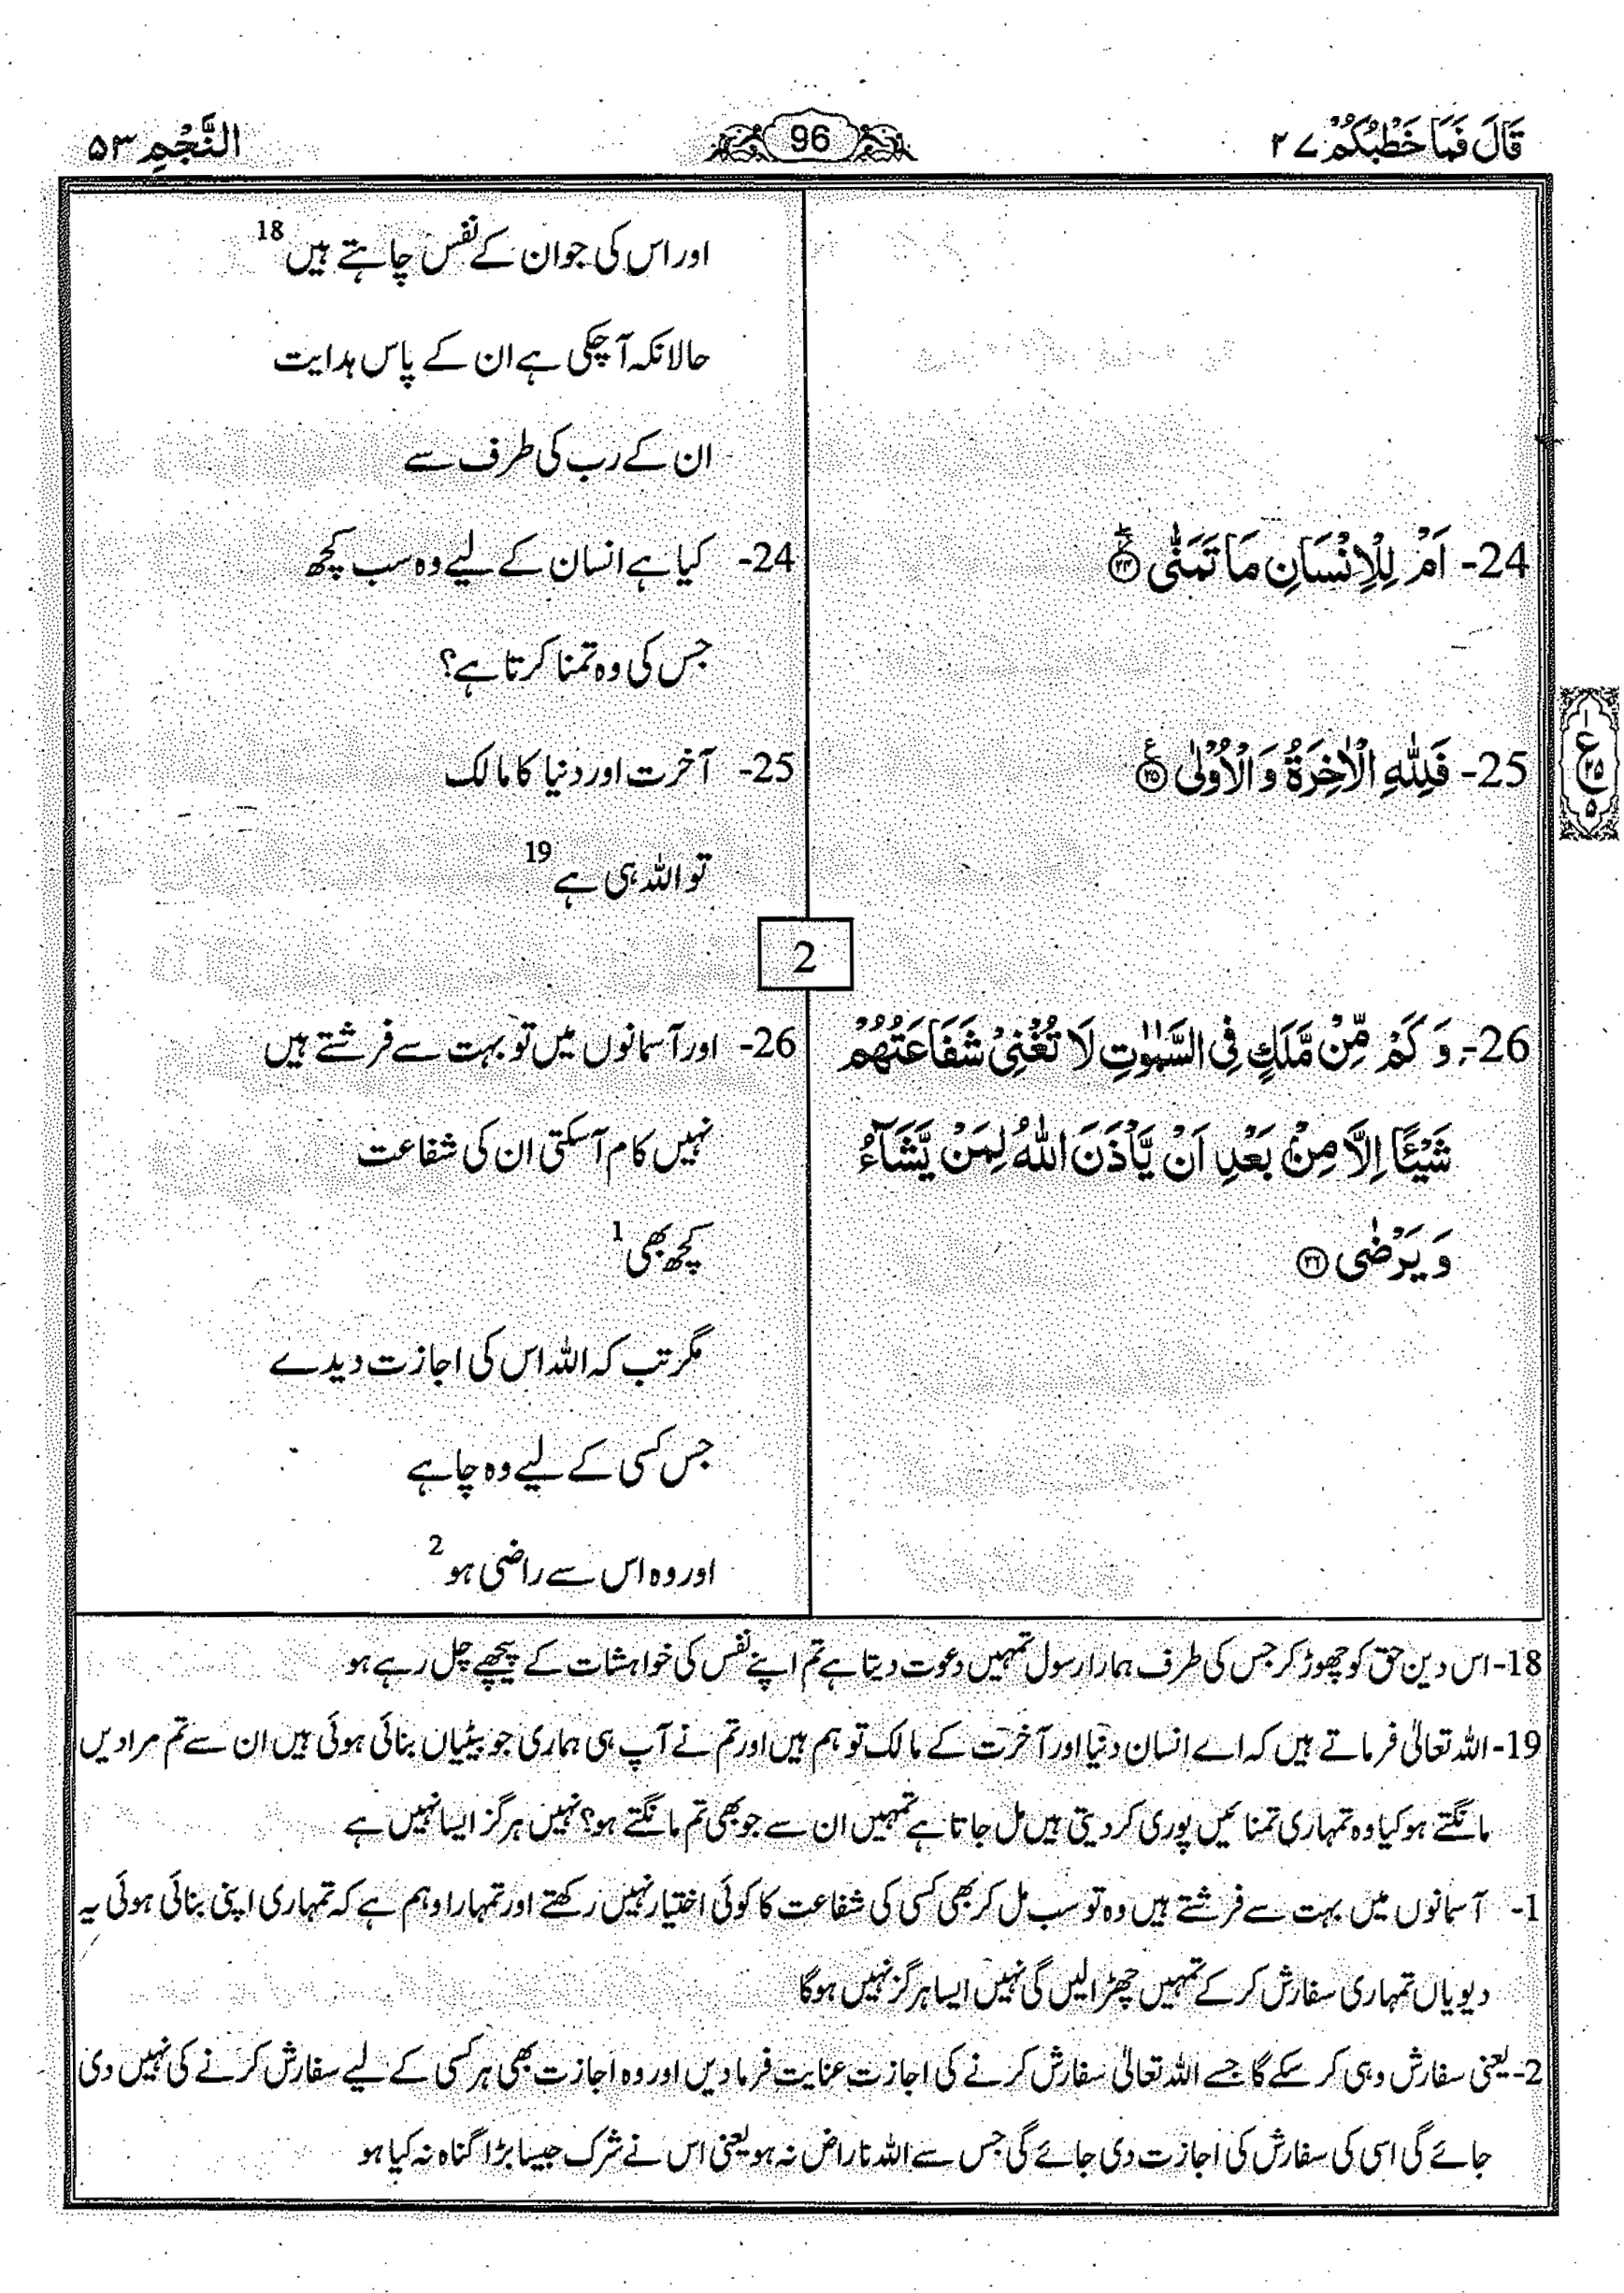 قَالَ فَمَا خَطْبُكُمْ ۲۷
96
النَّجْمِ ۵۳
اور اس کی جو ان کے نفس چاہتے ہیں 18
حالانکہ آ چکی ہے ان کے پاس ہدایت
ان کے رب کی طرف سے
24- اَمْ لِلْاِنْسَانِ مَا تَمَنّٰى ۖ۲۴
24- کیا ہے انسان کے لیے وہ سب کچھ
جس کی وہ تمنا کرتا ہے؟
25- فَلِلّٰهِ الْاٰخِرَةُ وَ الْاُوْلٰى ۲۵ ع
25- آخرت اور دنیا کا مالک
تو اللہ ہی ہے 19
۱
ع
۲۵
۵
2
26- وَ كَمْ مِّنْ مَّلَكٍ فِى السَّمٰوٰتِ لَا تُغْنِىْ شَفَاعَتُهُمْ
شَيْـًٔا اِلَّا مِنْۢ بَعْدِ اَنْ يَّاْذَنَ اللّٰهُ لِمَنْ يَّشَآءُ
وَ يَرْضٰى ۲۶
26- اور آسمانوں میں تو بہت سے فرشتے ہیں
نہیں کام آ سکتی ان کی شفاعت
کچھ بھی 1
مگر تب کہ اللہ اس کی اجازت دیدے
جس کسی کے لیے وہ چاہے
اور وہ اس سے راضی ہو 2
18- اس دین حق کو چھوڑ کر جس کی طرف ہمارا رسول تمہیں دعوت دیتا ہے تم اپنے نفس کی خواہشات کے پیچھے چل رہے ہو
19- اللہ تعالیٰ فرماتے ہیں کہ اے انسان دنیا اور آخرت کے مالک تو ہم ہیں اور تم نے آپ ہی ہماری جو بیٹیاں بنائی ہوئی ہیں ان سے تم مرادیں
مانگتے ہو کیا وہ تمہاری تمنائیں پوری کر دیتی ہیں مل جاتا ہے تمہیں ان سے جو بھی تم مانگتے ہو؟ نہیں ہرگز ایسا نہیں ہے
1- آسمانوں میں بہت سے فرشتے ہیں وہ تو سب مل کر بھی کسی کی شفاعت کا کوئی اختیار نہیں رکھتے اور تمہارا وہم ہے کہ تمہاری اپنی بنائی ہوئی یہ
دیویاں تمہاری سفارش کر کے تمہیں چھڑا لیں گی نہیں ایسا ہرگز نہیں ہوگا
2- یعنی سفارش وہی کر سکے گا جسے اللہ تعالیٰ سفارش کرنے کی اجازت عنایت فرما دیں اور وہ اجازت بھی ہر کسی کے لیے سفارش کرنے کی نہیں دی
جائے گی اسی کی سفارش کی اجازت دی جائے گی جس سے اللہ ناراض نہ ہو یعنی اس نے شرک جیسا بڑا گناہ نہ کیا ہو